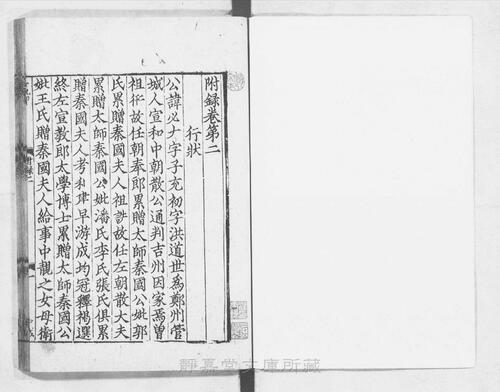 附錄卷第二
行狀
公諱必大字子充初字洪道世爲鄭州管
城人宣和中朝散公通判吉州因家焉曾
祖衎故任朝奉郎累贈太師秦國公妣郭
氏累贈秦國夫人祖詵故任左朝散大夫
累贈太師秦國公妣潘氏李氏張氏俱累
贈秦國夫人考利建早游成均冠釋褐選
終左宣教郎太學博士累贈太師秦國公
妣王氏贈秦國夫人給事中靚之女母衛
靜嘉堂文庫所藏